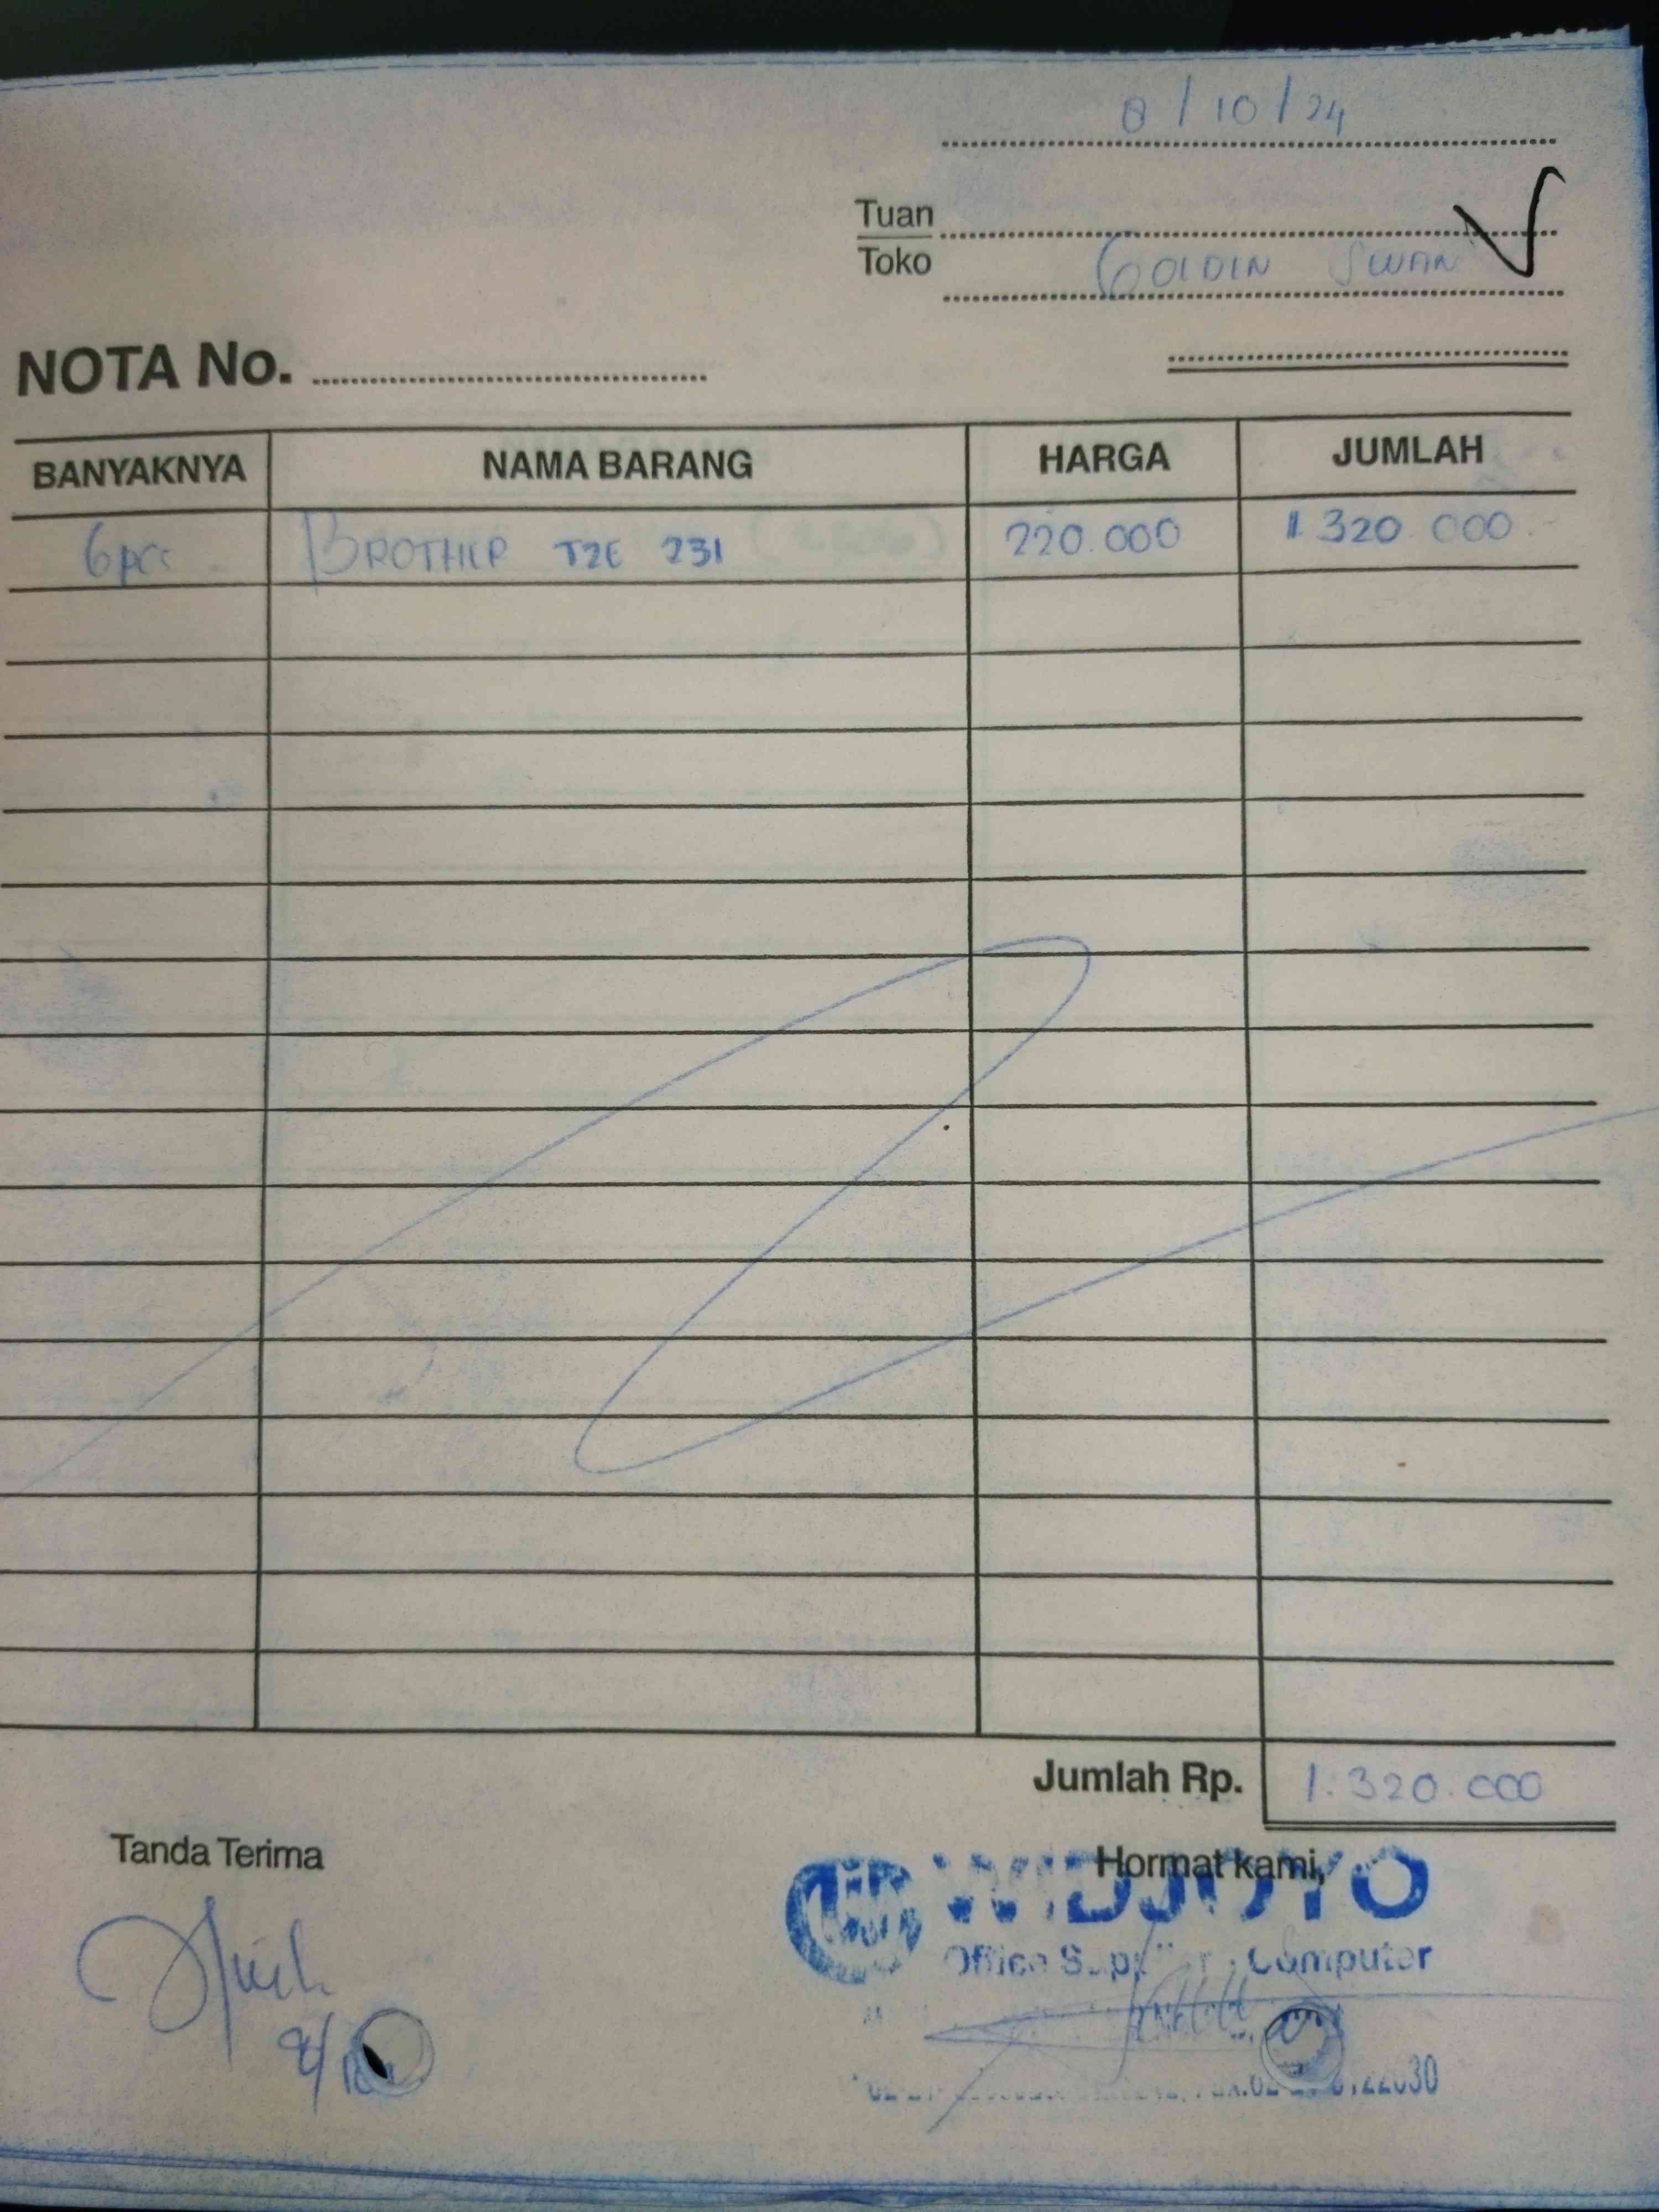 8/10/24
Tuan
Toko GOLDEN SWAN
NOTA No.
BANYAKNYA NAMA BARANG HARGA JUMLAH
6pcs BROTHER TZE 231 220.000 1.320.000
Jumlah Rp. 1.320.000
Tanda Terima Hormat kami,
WIDJOYO
Office Computer